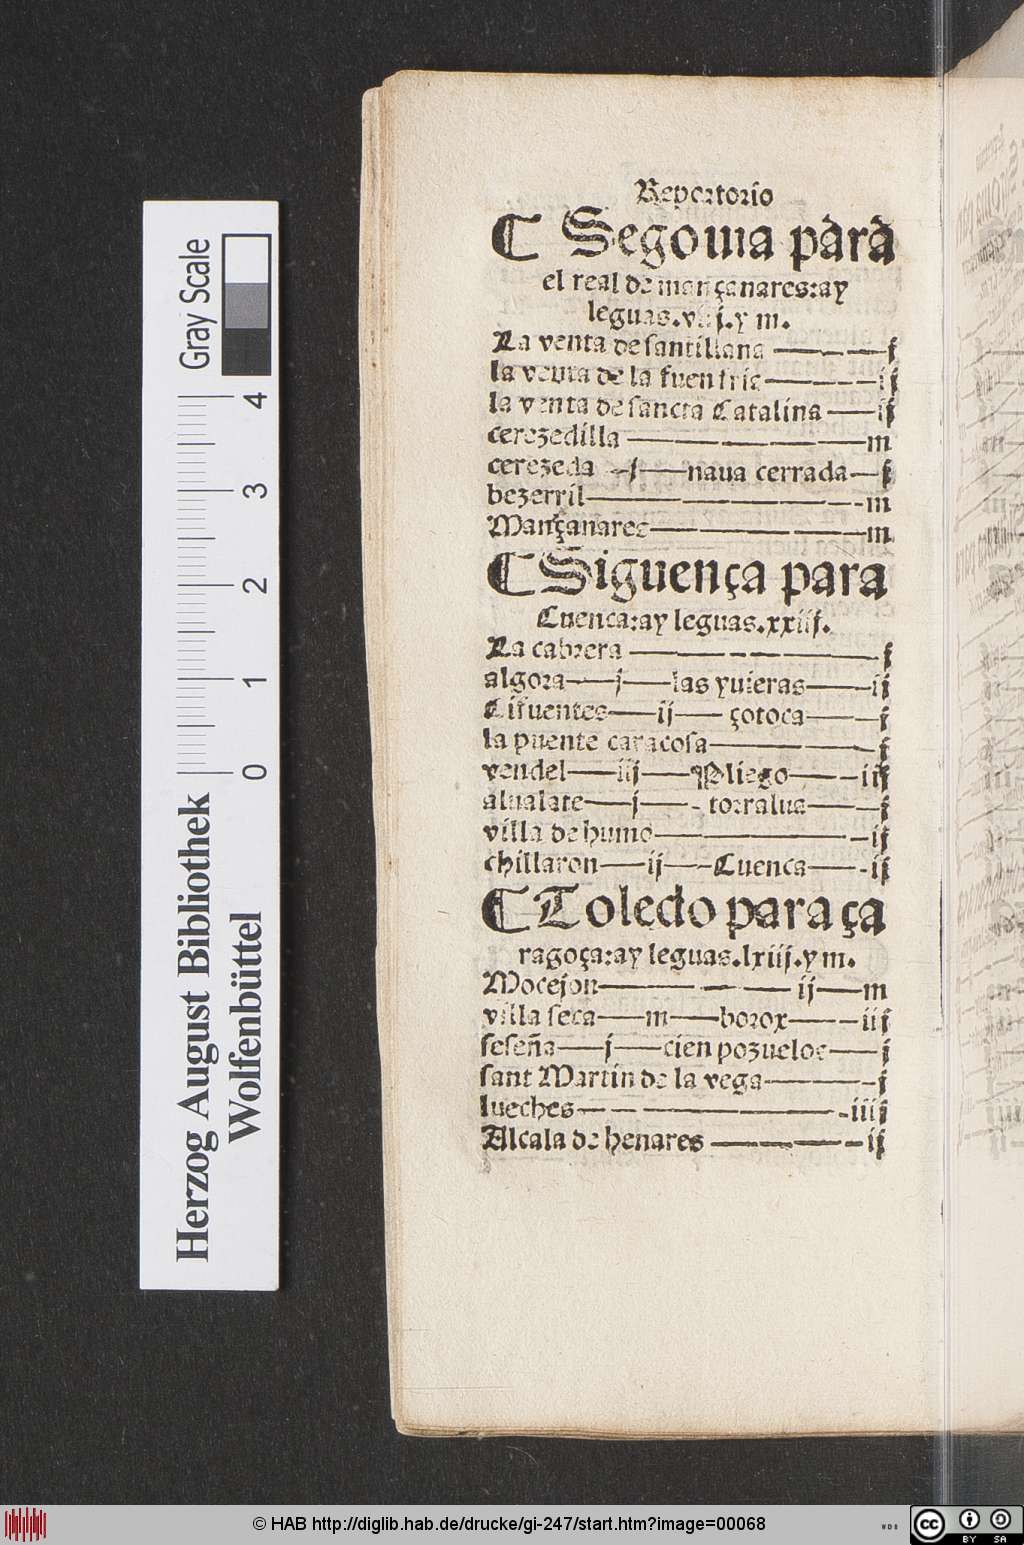 Repertorio
¶ Segouia para
el real de mançanares:ay
leguas.viij.y m.
La venta de santillana — j
la venta de la fuenfria — ij
la venta de sancta Catalina — ij
cerezedilla — m
cerezeda — j — naua cerrada — j
bezerril — m
Mançanares — m
¶ Siguença para
Cuenca:ay leguas.xxiij.
La cabrera — j
algora — j — las yuieras — ij
Cifuentes — ij — çotoca — j
la puente caracosa — j
vendel — iij — Pliego — iij
alualate — j — torralua — j
villa de humo — ij
chillaron — ij — Cuenca — ij
¶ Toledo para ça
ragoça:ay leguas.lxiij.y m.
Mocejon — ij — m
villa seca — m — borox — iij
seseña — j — cien pozuelos — j
sant Martin de la vega — j
lueches — iiij
Alcala de henares — ij
Gray Scale
4 3 2 1 0
Herzog August Bibliothek
Wolfenbüttel
© HAB http://diglib.hab.de/drucke/gi-247/start.htm?image=00068
WDB
cc BY SA